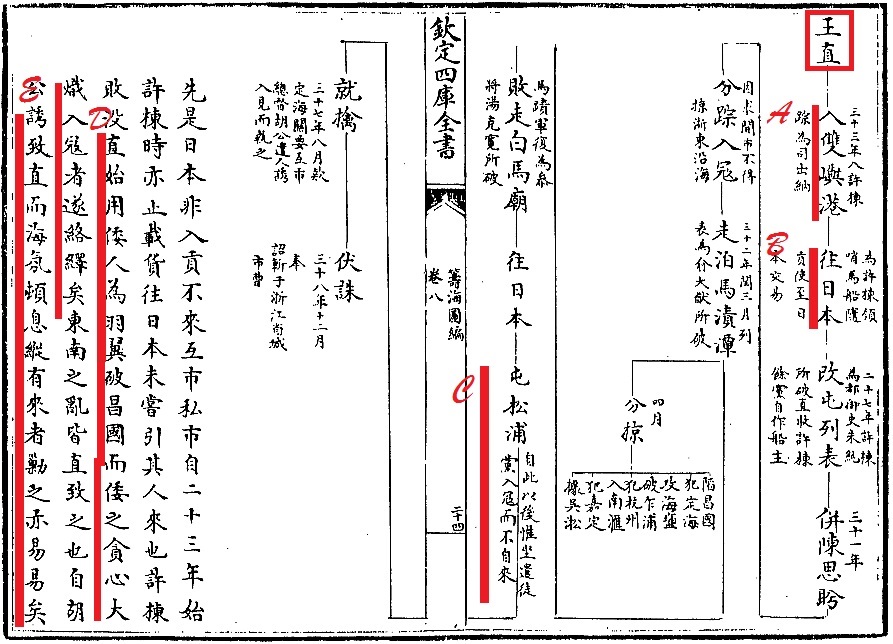 王直
A
入雙嶼港
二十三年入許棟
踪為司出納
B
往日本
為許棟領
哨馬船隨
貢使至日
本交易
改屯列表
二十七年許棟
為都御史朱紈
所破直收許棟
餘黨自作船主
併陳思盻
三十一年
分踪入寇
因求開市不得
掠浙東沿海
走泊馬蹟潭
三十二年閏三月列
表為俞大猷所破
分掠
四月
陷昌國
犯定海
攻海鹽
破乍浦
犯杭州
入南滙
犯嘉定
據吳淞
敗走白馬廟
馬蹟軍復為叅
將湯克寬所破
往日本
C
屯松浦
自此以後惟坐遣徒
黨入寇而不自來
欽定四庫全書
籌海圖編
卷八
二十四
就擒
三十七年八月款
定海關要互市
總督胡公遣人誘
入見而執之
伏誅
三十八年十二月
奉
詔斬于浙江省城
市曹
先是日本非入貢不來互市私市自二十三年始
許棟時亦止載貨往日本未嘗引其人來也許棟
D
敗沒直始用倭人為羽翼破昌國而倭之貪心大
熾入寇者遂絡繹矣東南之亂皆直致之也自胡
E
公誘致直而海氛頓息縱有來者勦之亦易易矣